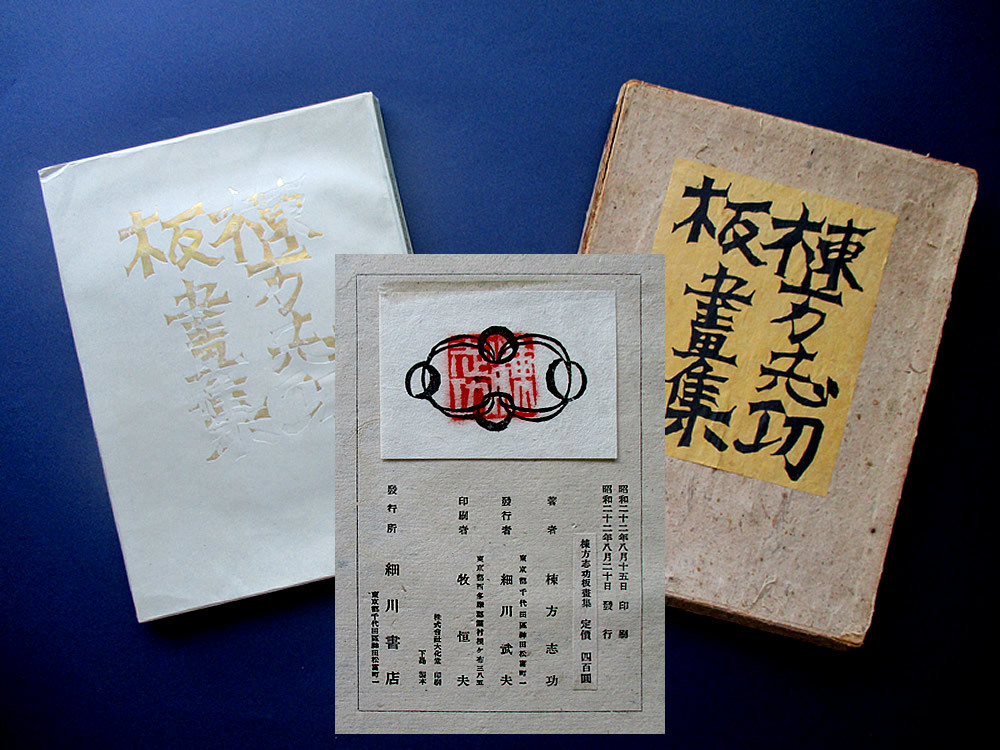 棟方志功
板畫集
棟方志功
板畫集
棟方
昭和二十二年八月十五日 印刷
昭和二十二年八月二十日 發行
棟方志功板畫集 定價 四百圓
著者 棟方志功
東京都千代田區神田松富町一
發行者 細川武夫
東京都西多摩郡
印刷者 牧恒夫
株式會社大化堂 印刷
下島 製本
發行所 細川書店
東京都千代田區神田松富町一